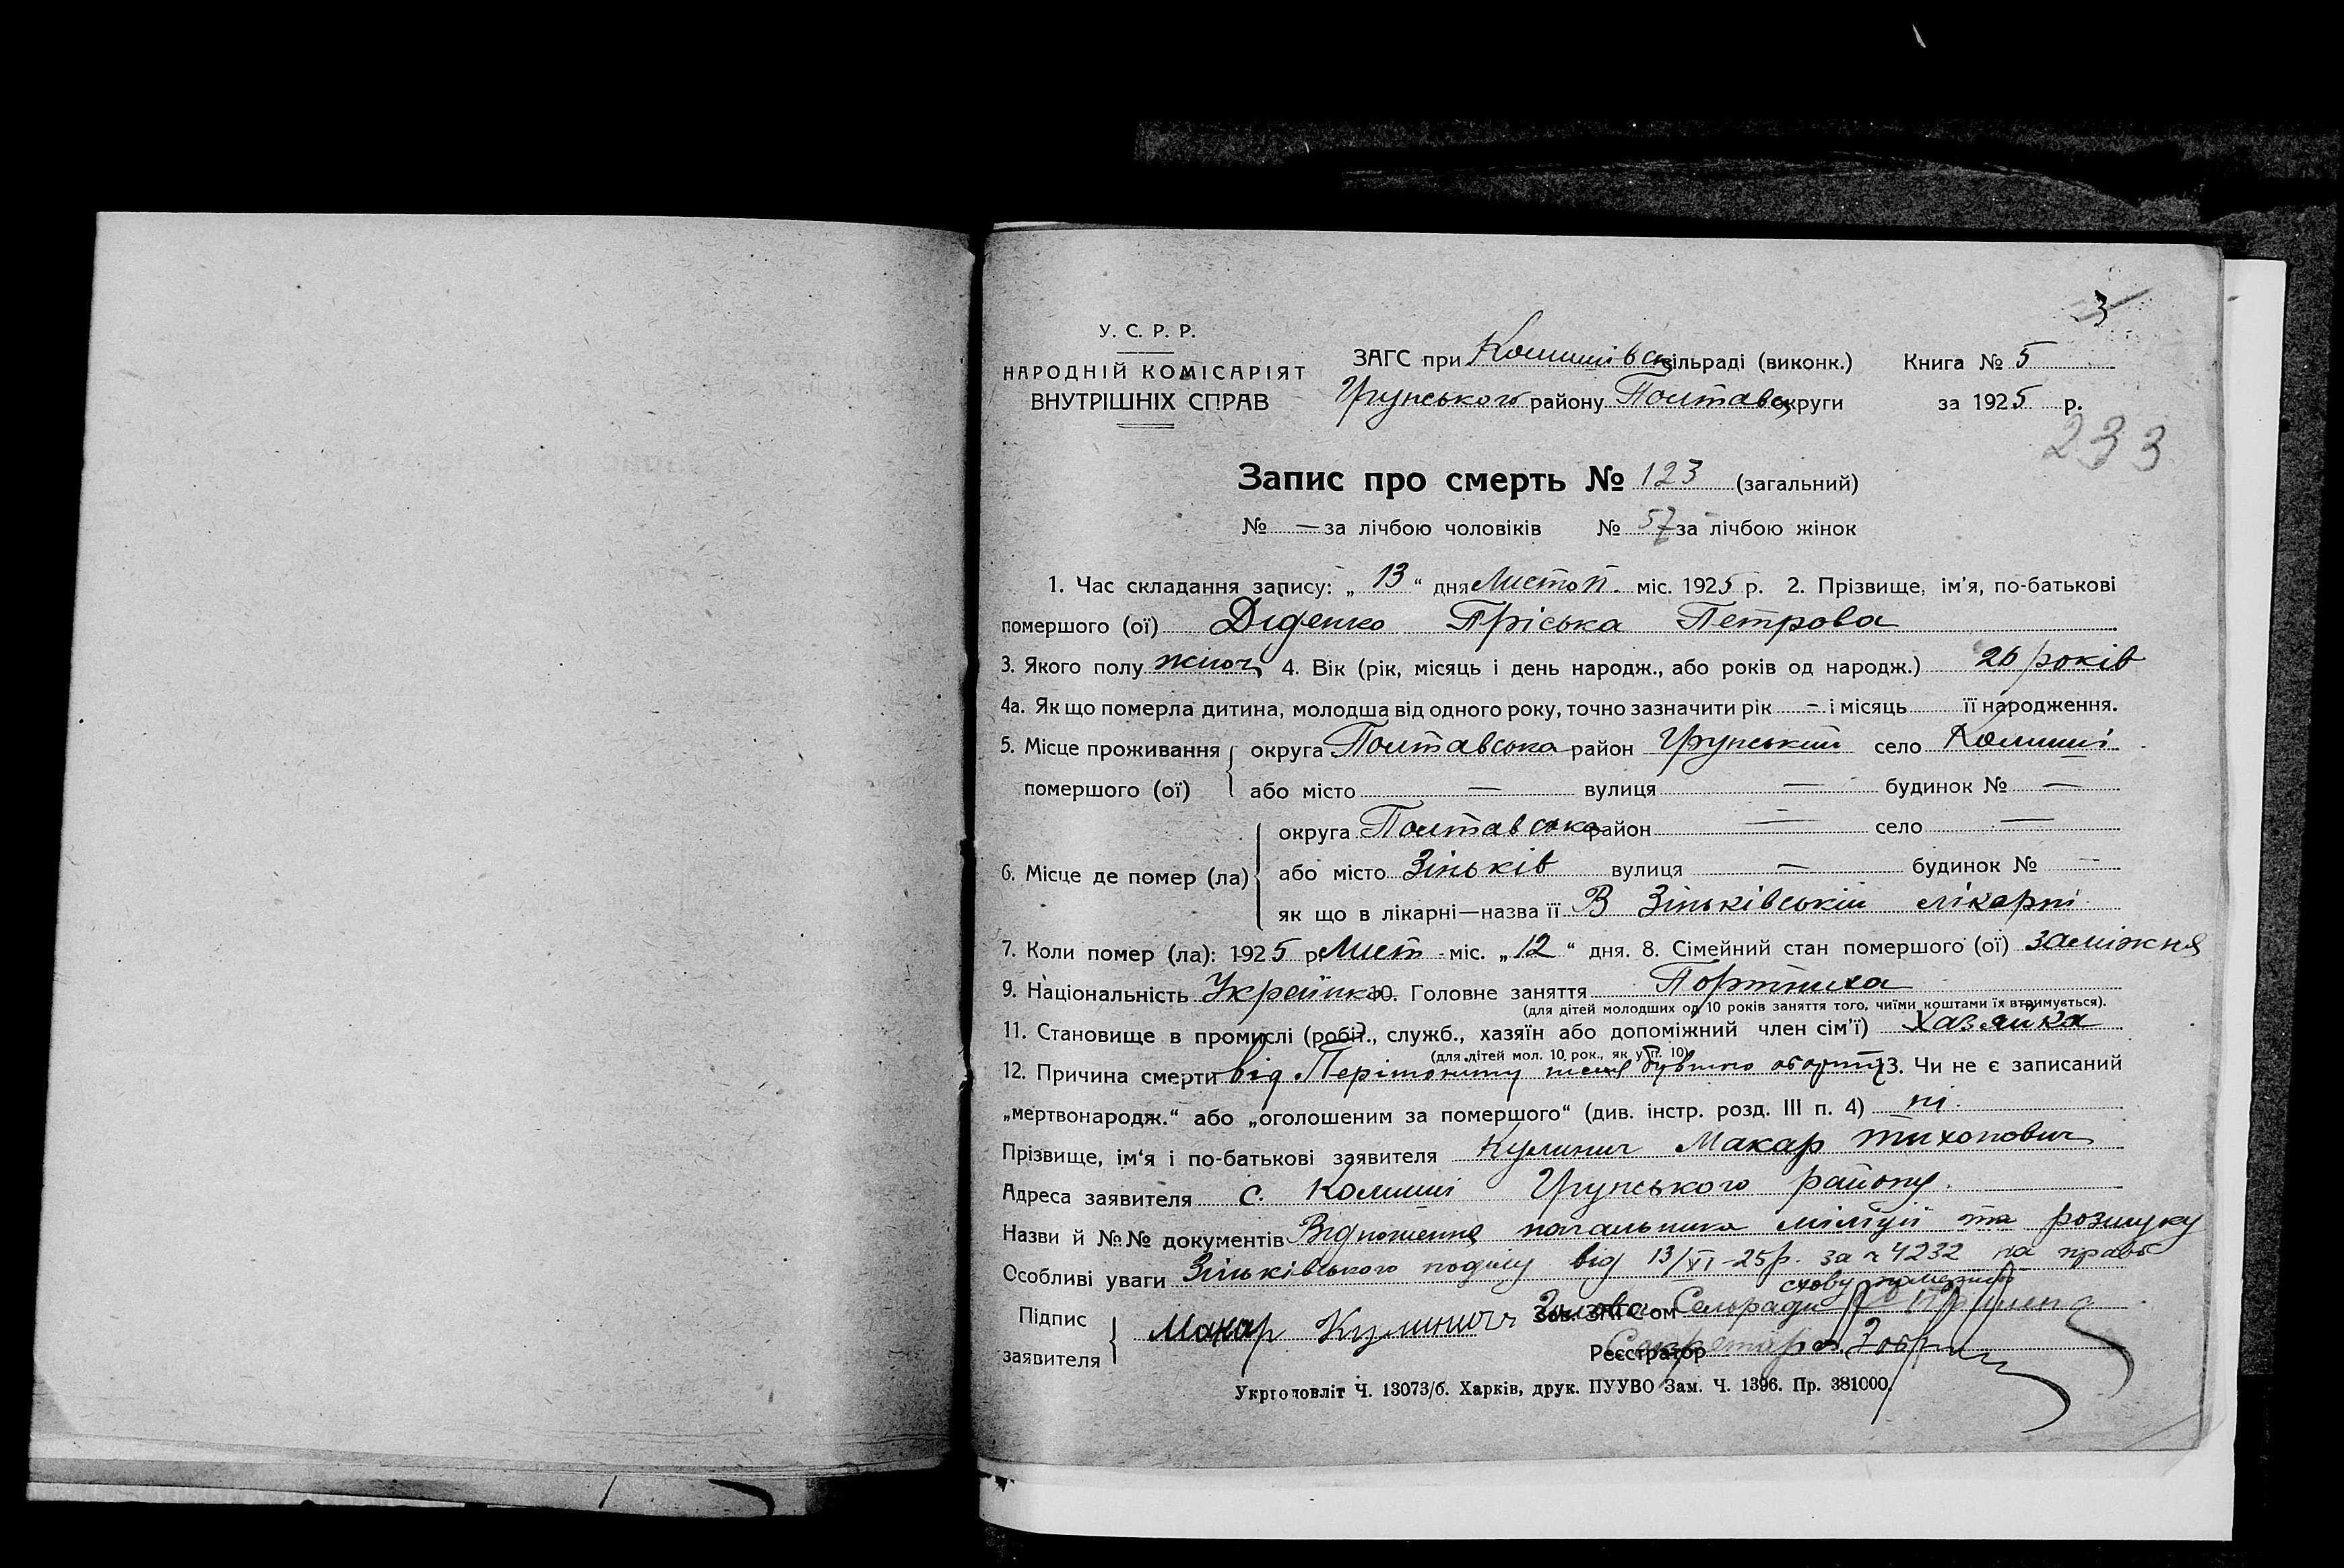 3
У. С. Р. Р.
НАРОДНІЙ КОМІСАРІЯТ
ВНУТРІШНІХ СПРАВ
ЗАГС при Комишівск сільраді (виконк.) Книга № 5
Грунського району Полтавс округи за 1925 р.
233
Запис про смерть № 123 (загальний)
№ — за лічбою чоловіків № 57 за лічбою жінок
1. Час складання запису: „ 13 “ дня Листоп. міс. 1925 р. 2. Прізвище, ім'я, по-батькові
помершого (ої) Діденко Пріська Петрова
3. Якого полу жіноч 4. Вік (рік, місяць і день народж., або років од народж.) 26 років
4а. Як що померла дитина, молодша від одного року, точно зазначити рік — і місяць її народження.
5. Місце проживання округа Полтавська район Грунський село Комиші
помершого (ої) або місто — вулиця — будинок № —
округа Полтавська район — село —
6. Місце де помер (ла) або місто Зіньків вулиця — будинок № —
як що в лікарні—назва її В Зіньківській лікарні
7. Коли помер (ла): 1925 р. Лист міс. „12“ дня. 8. Сімейний стан помершого (ої) заміжня
9. Національність Украінка 10. Головне заняття Портниха
(для дітей молодших од 10 років заняття того, чиїми коштами їх втримується).
11. Становище в промислі (робіт., служб., хазяїн або допоміжний член сім'ї) Хазяйка
(для дітей мол. 10 рок., як у п. 10)
12. Причина смерти від Перітониту після бувшого аборту 13. Чи не є записаний
„мертвонародж.“ або „оголошеним за помершого“ (див. інстр. розд. III п. 4) ні.
Прізвище, ім'я і по-батькові заявителя Кулинич Макар Тихонович
Адреса заявителя с. Комиші Грунського району.
Назви й №№ документів Відношення начальника міліціі та розшуку
Особливі уваги Зіньківського поділу від 13/XI-25р. за ч 4232 на право
схову
Підпис заявителя Макар Кулинич Зав. ЗАГС'ом Голова Сельради
Реєстратор Секретар
Укрголовліт Ч. 13073/б. Харків, друк. ПУУВО Зам. Ч. 1396. Пр. 381000.